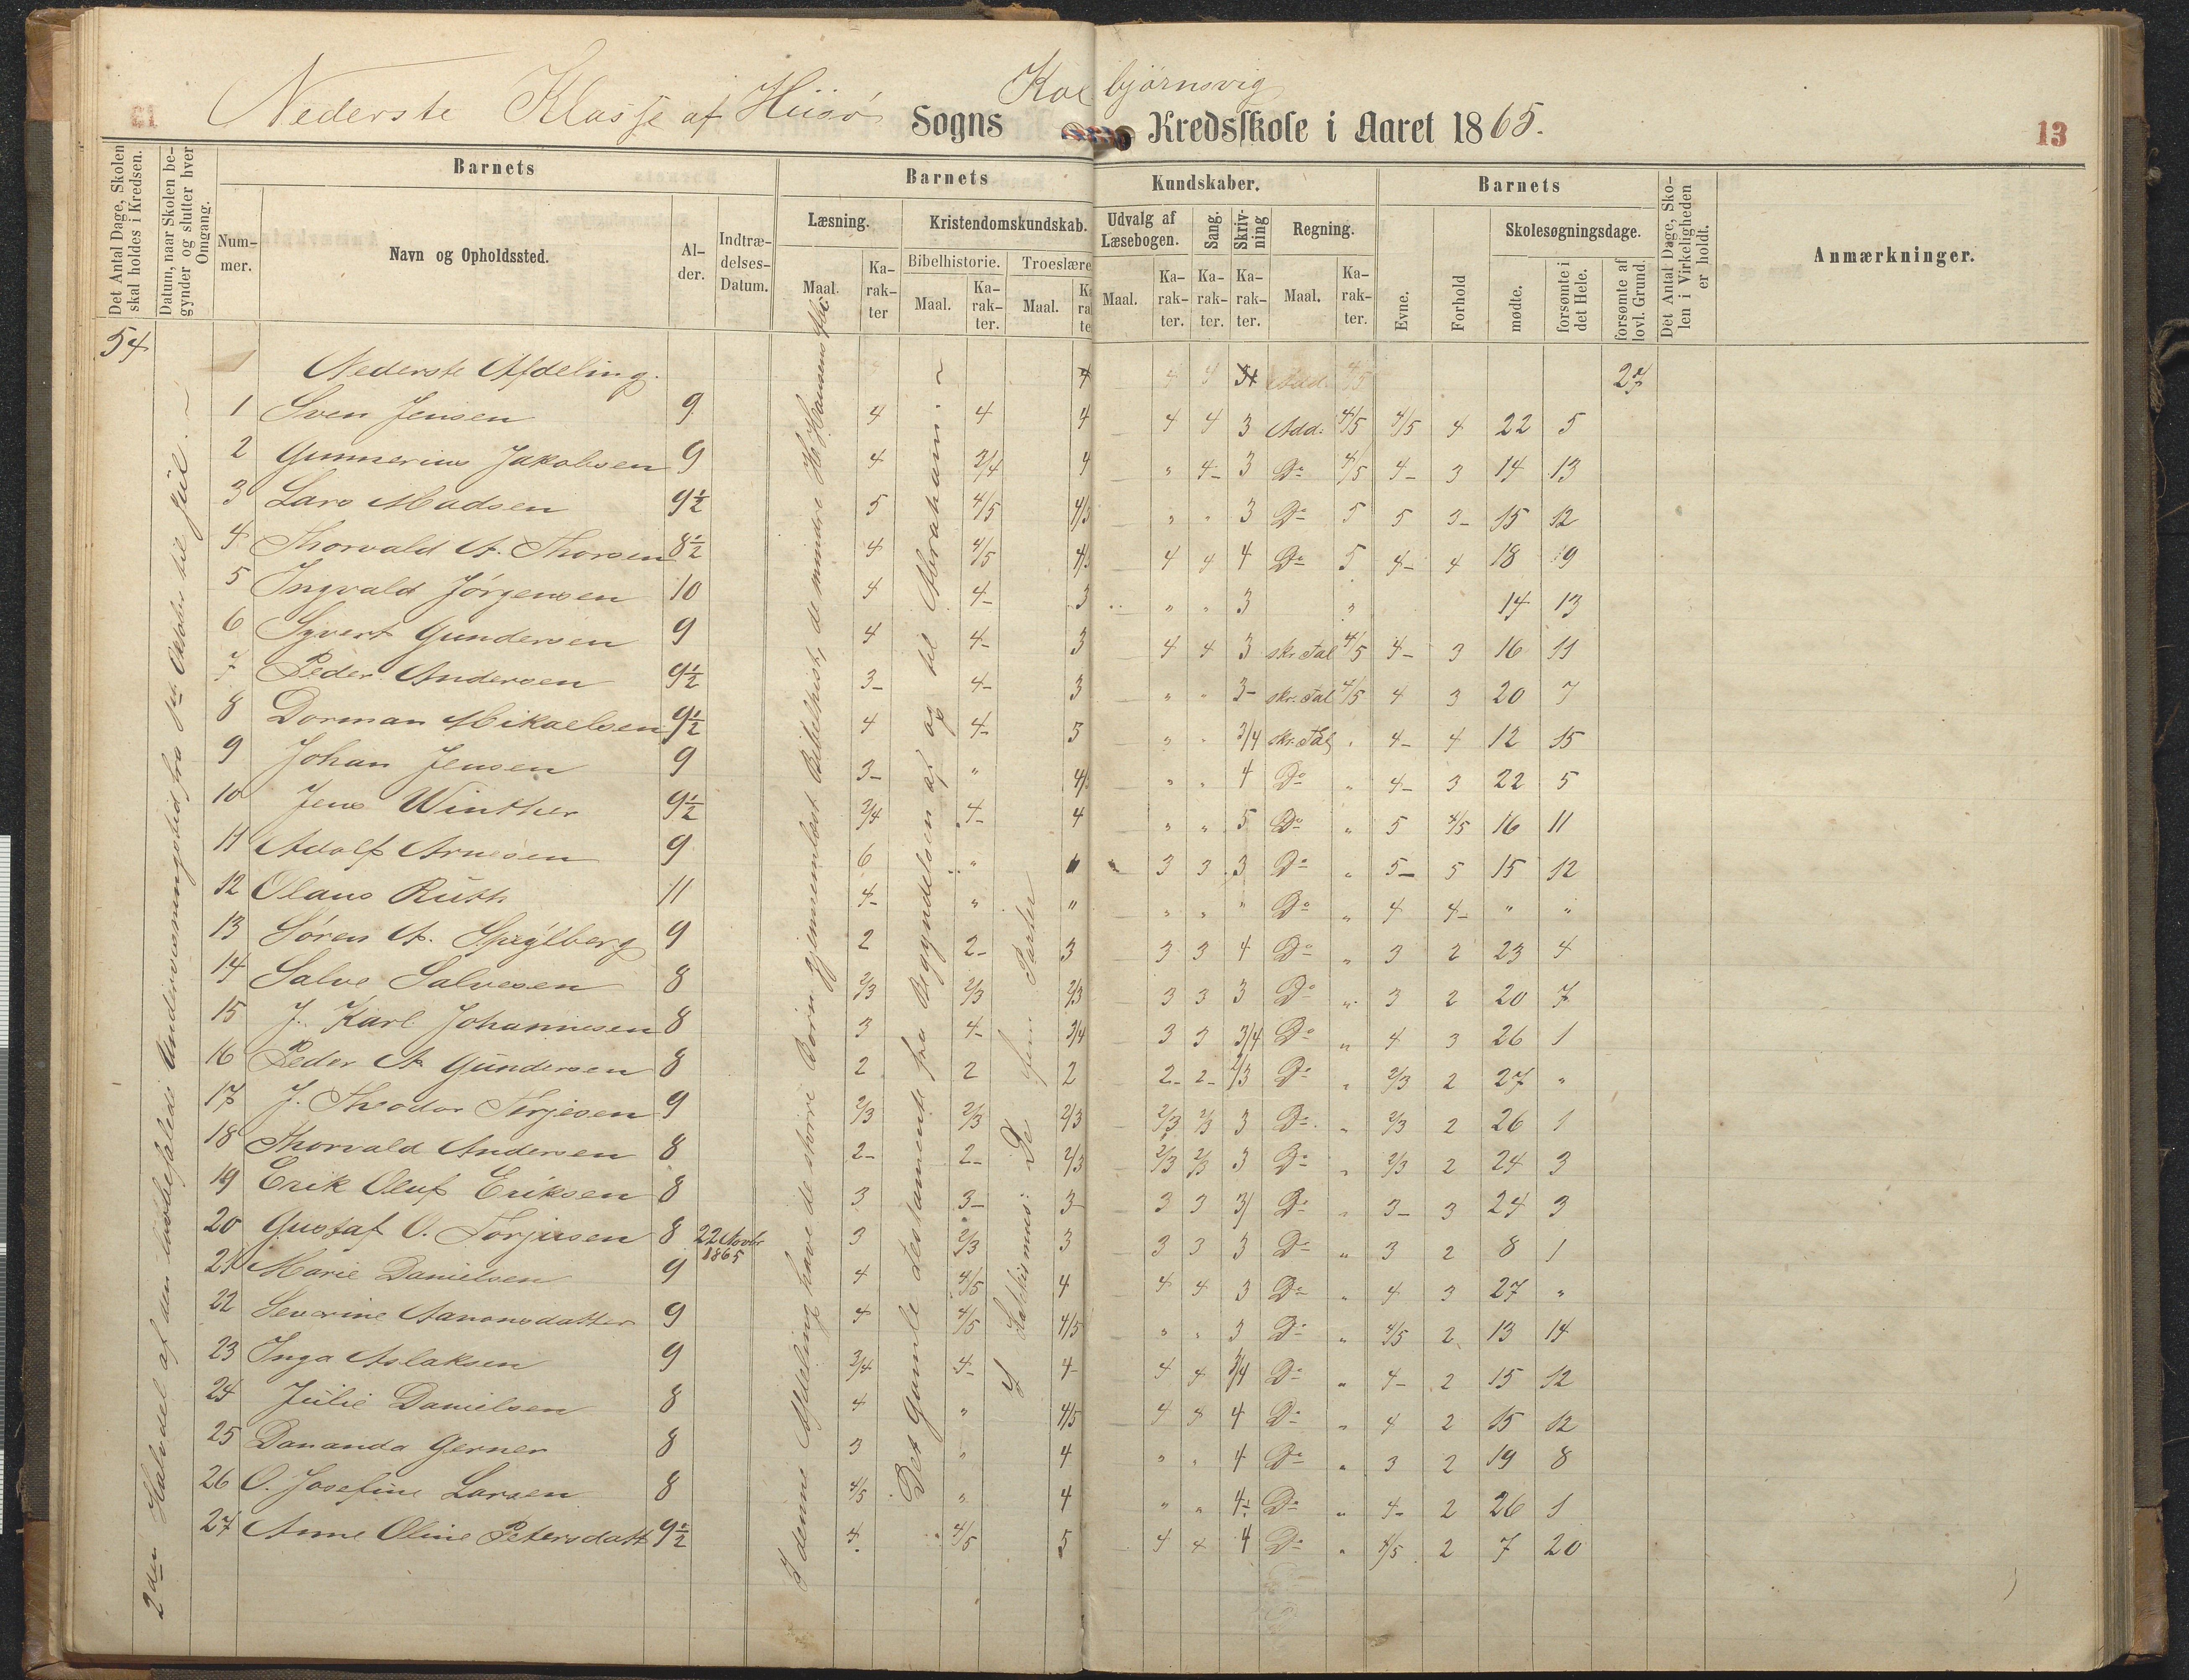 Nederste Klasse af Hiisø Sogns Kolbjørnsvig Kredsskole i Aaret 1865.
13
Det Antal Dage, Skolen skal holdes i Kredsen.
Datum, naar Skolen begynder og slutter hver Omgang.
Barnets
Nummer.
Navn og Opholdssted.
Alder.
Indtrædelses-Datum.
Barnets Kundskaber.
Læsning.
Maal.
Karakter
Kristendomskundskab.
Bibelhistorie.
Maal.
Karakter.
Troeslære
Maal.
Udvalg af Læsebogen.
Maal.
Karakter.
Sang.
Karakter.
Skrivning
Karakter.
Regning.
Maal.
Karakter.
Barnets
Evne.
Forhold
Skolesøgningsdage.
mødte.
forsømte i det Hele.
forsømte af lovl. Grund.
Det Antal Dage, Skolen i Virkeligheden er holdt.
Anmærkninger.
54
2den Halvdel af den lovbefalede Undervisningstid fra 1st Oktober til Jul.
I denne Afdeling have de større Børn gjennemlæst Bibelhist, de mindre
Det Gamle Testamente fra Begyndelsen af og til Abraham.
I Katekismus: De fem Parter
Nederste Afdeling. 4 4 4 Add. 4/5 27
1 Sven Jensen 9 4 4 4 4 4 3 Add: 4/5 4/5 4 22 5
2 Gunnerius Jakobsen 9 4 3/4 4 " 4- 3 Do 4/5 4- 3 14 13
3 Lars Madsen 9½ 5 4/5 " " 3 Do 5 5 3- 15 12
4 Thorvald A. Thorsen 8½ 4 4/5 4 4 4 Do 5 4- 4 18 9
5 Ingvald Jørgensen 10 4 4- 3 " " 3 " 14 13
6 Syvert Gundersen 9 4 4- 3 4 4 3 skr. Tal 4/5 4- 3 16 11
7 Peder Andersen 9½ 3- 4- 3 " " 3- skr. Tal 4/5 4 3 20 7
8 Dorman Mikaelsen 9½ 4 4- 3 " " 3/4 skr. Tal " 4- 4 12 15
9 Johan Jensen 9 3- " " " 4 Do " 4- 3 22 5
10 Jens Winther 9½ 3/4 4- 4 " " 5 Do " 5 4/5 16 11
11 Adolf Arnesen 9 6 " 3 3 3 Do " 5- 5 15 12
12 Olaus Ruth 11 4- " " " " " Do " 4 4- " "
13 Søren A. 9 2 2- 3 3 3 4 Do " 3 2 23 4
14 Salve Salvesen 8 2/3 2/3 2/3 3 3 3 Do " 3 2 20 7
15 J. Karl Johannesen 8 3 4- 3/4 3 3 3/4 Do " 4 3 26 1
16 Peder A. Gundersen 8 2 2 2 2- 2- 2/3 Do " 2/3 2 27 "
17 J. Theodor Terjesen 9 2/3 2/3 2/3 2/3 2/3 3 Do " 2/3 2 26 1
18 Thorvald Andersen 8 2- 2- 2/3 2/3 2/3 3 Do " 2/3 2 24 3
19 Erik Oluf Eriksen 8 3 3- 3 3 3 3 Do " 3- 3 24 3
20 Gustaf O. Torjusen 8 22 Novbr 1865 3 2/3 3 3 3 3 Do " 3 2 8 1
21 Marie Danielsen 9 4 4/5 4 4 4 3 Do " 4 3 27 "
22 Severine Aanonsdatter 9 4 4/5 4/5 " " 3 Do " 4/5 2 13 14
23 Inga Aslaksen 9 3/4 4- 4 4 4 3/4 Do " 4- 2 15 12
24 Julie Danielsen 8 4 " 4/5 4 4 4 Do " 4 2 15 12
25 Dananda Gerner 8 3 " 4 " " 4 Do " 3 2 19 8
26 O. Josefine Larsen 8 4/5 " 4 " " 4- Do " 4- 2 26 1
27 Anne Oline Petersdatt 9½ 4 4/5 5 4 4 4 Do " 4/5 2 7 20